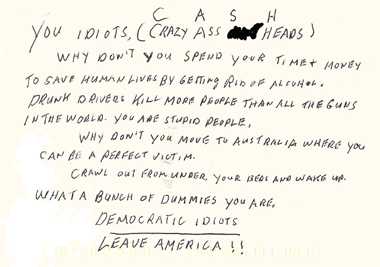 C A S H
YOU IDIOTS, (CRAZY ASS HEADS)
WHY DON'T YOU SPEND YOUR TIME + MONEY
TO SAVE HUMAN LIVES BY GETTING RID OF ALCOHOL.
DRUNK DRIVERS KILL MORE PEOPLE THAN ALL THE GUNS
IN THE WORLD. YOU ARE STUPID PEOPLE.
WHY DON'T YOU MOVE TO AUSTRALIA WHERE YOU
CAN BE A PERFECT VICTIM.
CRAWL OUT FROM UNDER, YOUR BEDS AND WAKE UP.
WHAT A BUNCH OF DUMMIES YOU ARE.
DEMOCRATIC IDIOTS
LEAVE AMERICA !!